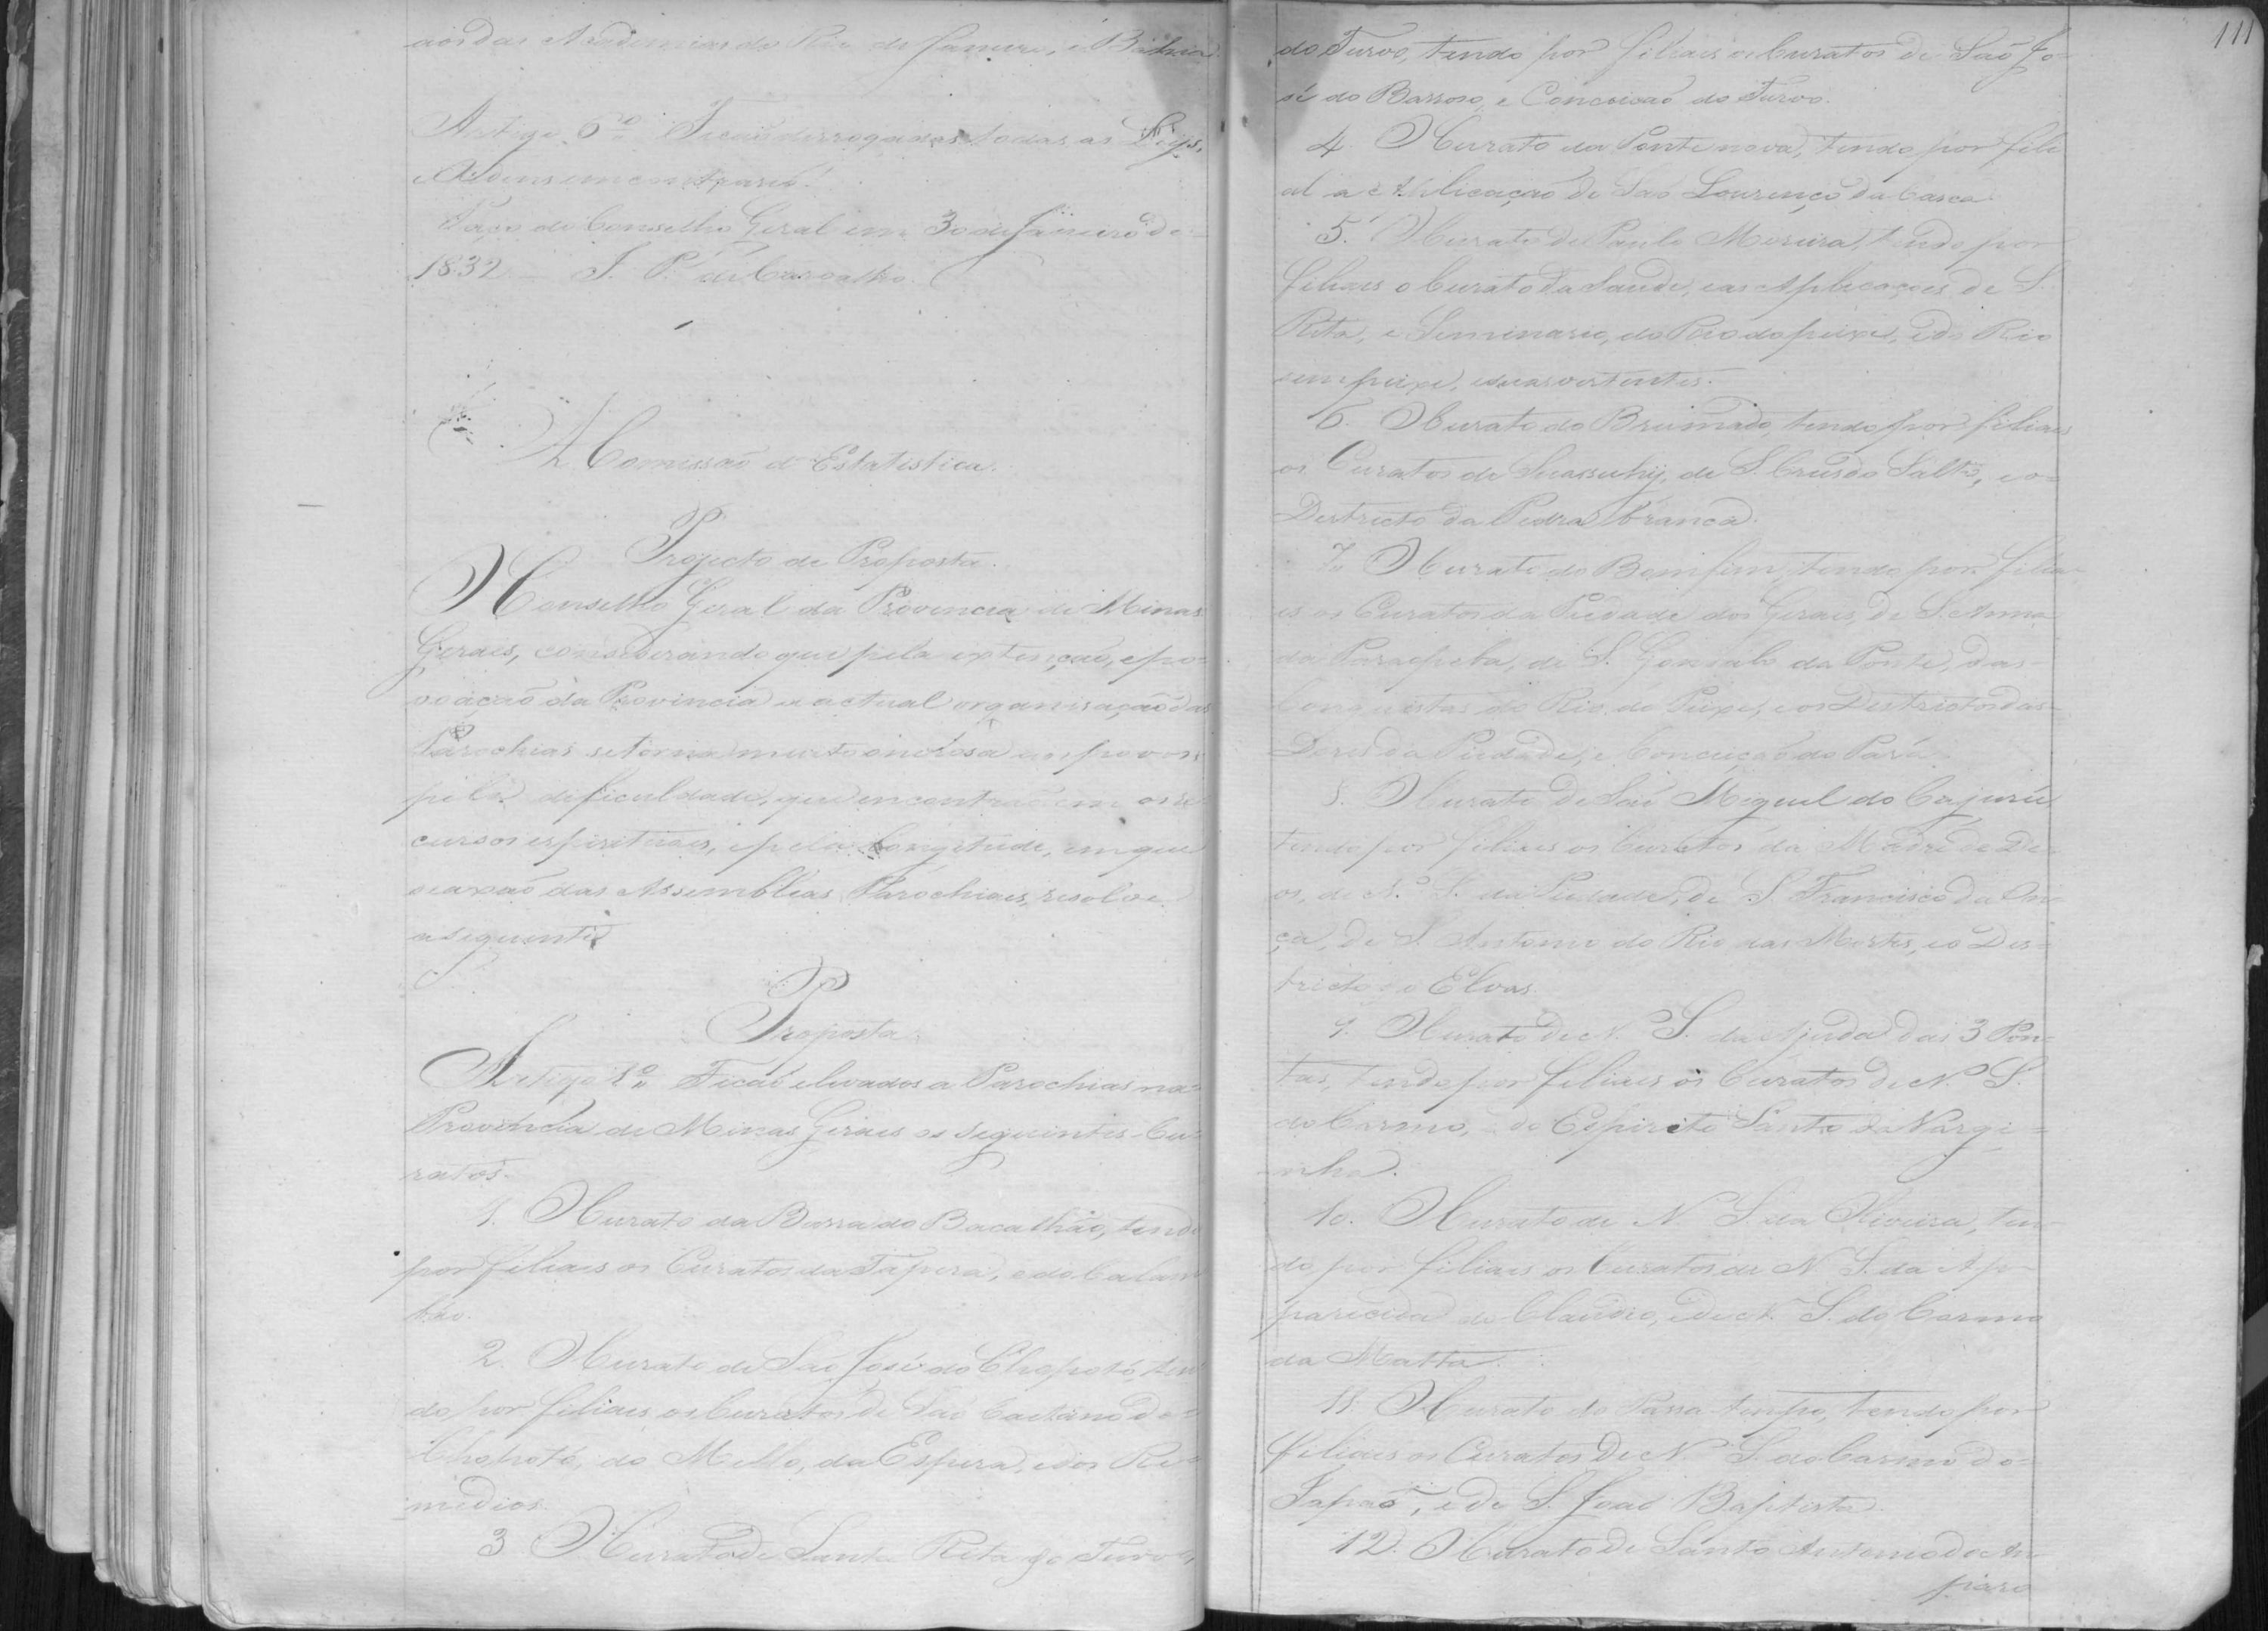 aos das Academias do Rio de Janeiro, e Bahia.
Artigo 6º Ficaõ derrogadas todas as Leys,
e Ordens em contrario.
Paço do Conselho Geral em 30 de Janeiro de
1832 — J. P. de Carvalho.
A Comissaõ de Estatistica.
Projecto de Proposta.
O Conselho Geral da Provincia de Minas
Geraes, considerando que pela extençaõ, e po-
voaçaõ da Provincia a actual organisaçaõ das
Parochias se torna muito onerosa aos povos,
pela dificuldade, que encontraõ em os re-
cursos espirituaes, e pela longitude, em que
se axaõ das Assembléas Parochiaes, resolve
a seguinte
Proposta
Artigo 1º Ficaõ elevados a Parochias na
Provincia de Minas Geraes os seguintes Cu-
ratos.
1. O Curato da Barra do Bacalháo, tendo
por filiaes os Curatos da Tapera, e do Calam
báo.
2. O Curato de Saõ José do Chopotó, ten
do por filiaes os Curatos de Saõ Caetano do
Chopotó, do Mello, da Espera, e dos Re-
medios.
3 O Curato de Santa Rita do Turvo,
111
do Turvo, tendo por filiaes os Curatos de Saõ Jo-
sé do Barroso, e Conceicaõ do Turvo.
4. O Curato da Ponte nova, tendo por fili
al a Aplicaçaõ de Saõ Lourenço da Casca.
5. O Curato de Paulo Moreira, tendo por
filiaes o Curato da Saude, e as Aplicaçoes de S.
Rita, e Seminario, do Rio do peixe, e do Rio
sem peixe, e suas vertentes.
6. O Curato do Brumado, tendo por filiaes
os Curatos de Suassuhy, de S. Crus do Salto, e o
Destricto da Pedra branca.
7. O Curato do Bomfim, tendo por filia-
es os Curatos da Piedade dos Geraes, de S. Anna
da Paraopeba, de S. Gonsalo da Ponte, das
Conquistas do Rio do Peixe, e os Destrictos das
Dores da Piedade, e Conceiçaõ do Pará.
8. O Curato de Saõ Miguel do Cajurú
tendo por filiaes os Curatos da Madre de De-
os, de N. S. da Piedade, de S. Francisco da On
ça, de S. Antonio do Rio das Mortes, e o Des-
tricto do Elvas.
9. O Curato de N. S. da Ajuda das 3 Pon-
tas, tendo por filiaes os Curatos de N. S.
do Carmo, do Espirito Santo da Vargi-
nha.
10. O Curato de N. S. da Oliveira, ten-
do por filiaes os Curatos de N. S. da Ap-
parecida do Claudio, e de N. S. do Carmo
da Matta.
11. O Curato do Passa tempo, tendo por
filiaes os Curatos de N. S. do Carmo do
Japaõ, e de S. Joaõ Baptista.
12. O Curato de Santo Antonio do Am-
paro